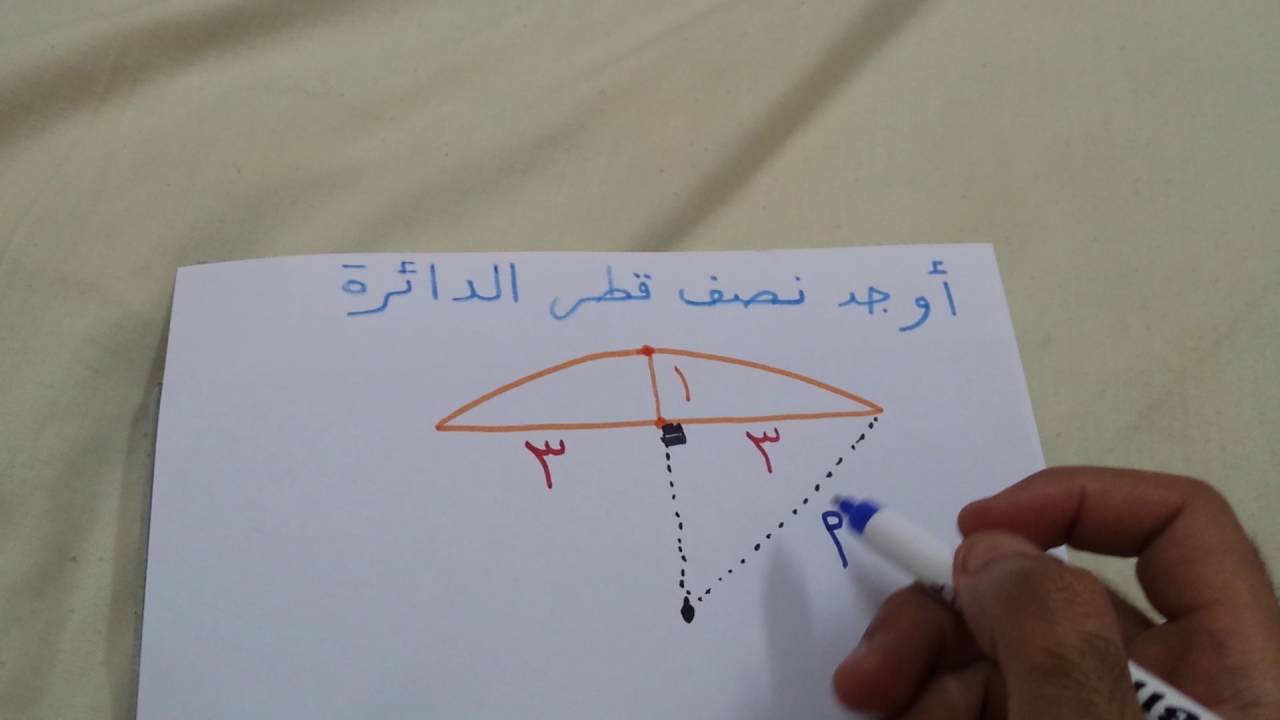 أوجد نصف قطر الدائرة
١
٣ ٣
م